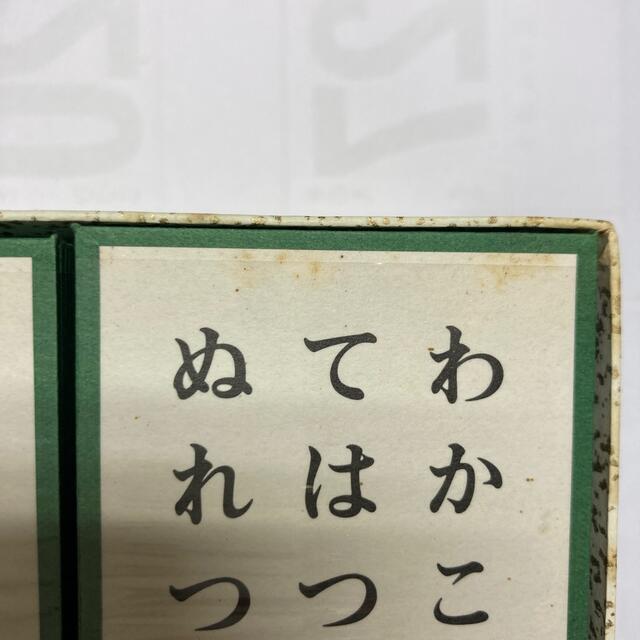 わかこ
てはつ
ぬれつ